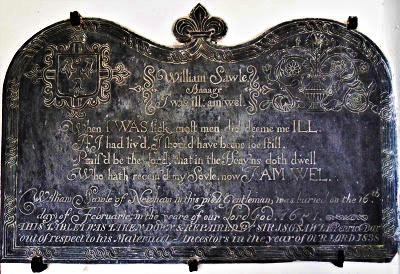 William Sawle
Anagr.
I was ill: am wel.
When I WAS sick, most men did deeme me ILL.
If I had liv'd, I should have beene soe still.
Prais'd be the Lord, that in the Heav'ns doth dwell
Who hath receiv'd my Sowle, now I AM WEL.
William Sawle of in this pish Gentleman, was buried on the 16th
day of Februarie, in the yeare of our Lord God. 1651.
THIS TABLET WAS TAKEN DOWN & REPAIRED BY SIR SAWLE
out of respect to his Maternal Ancestors in the year of OUR LORD